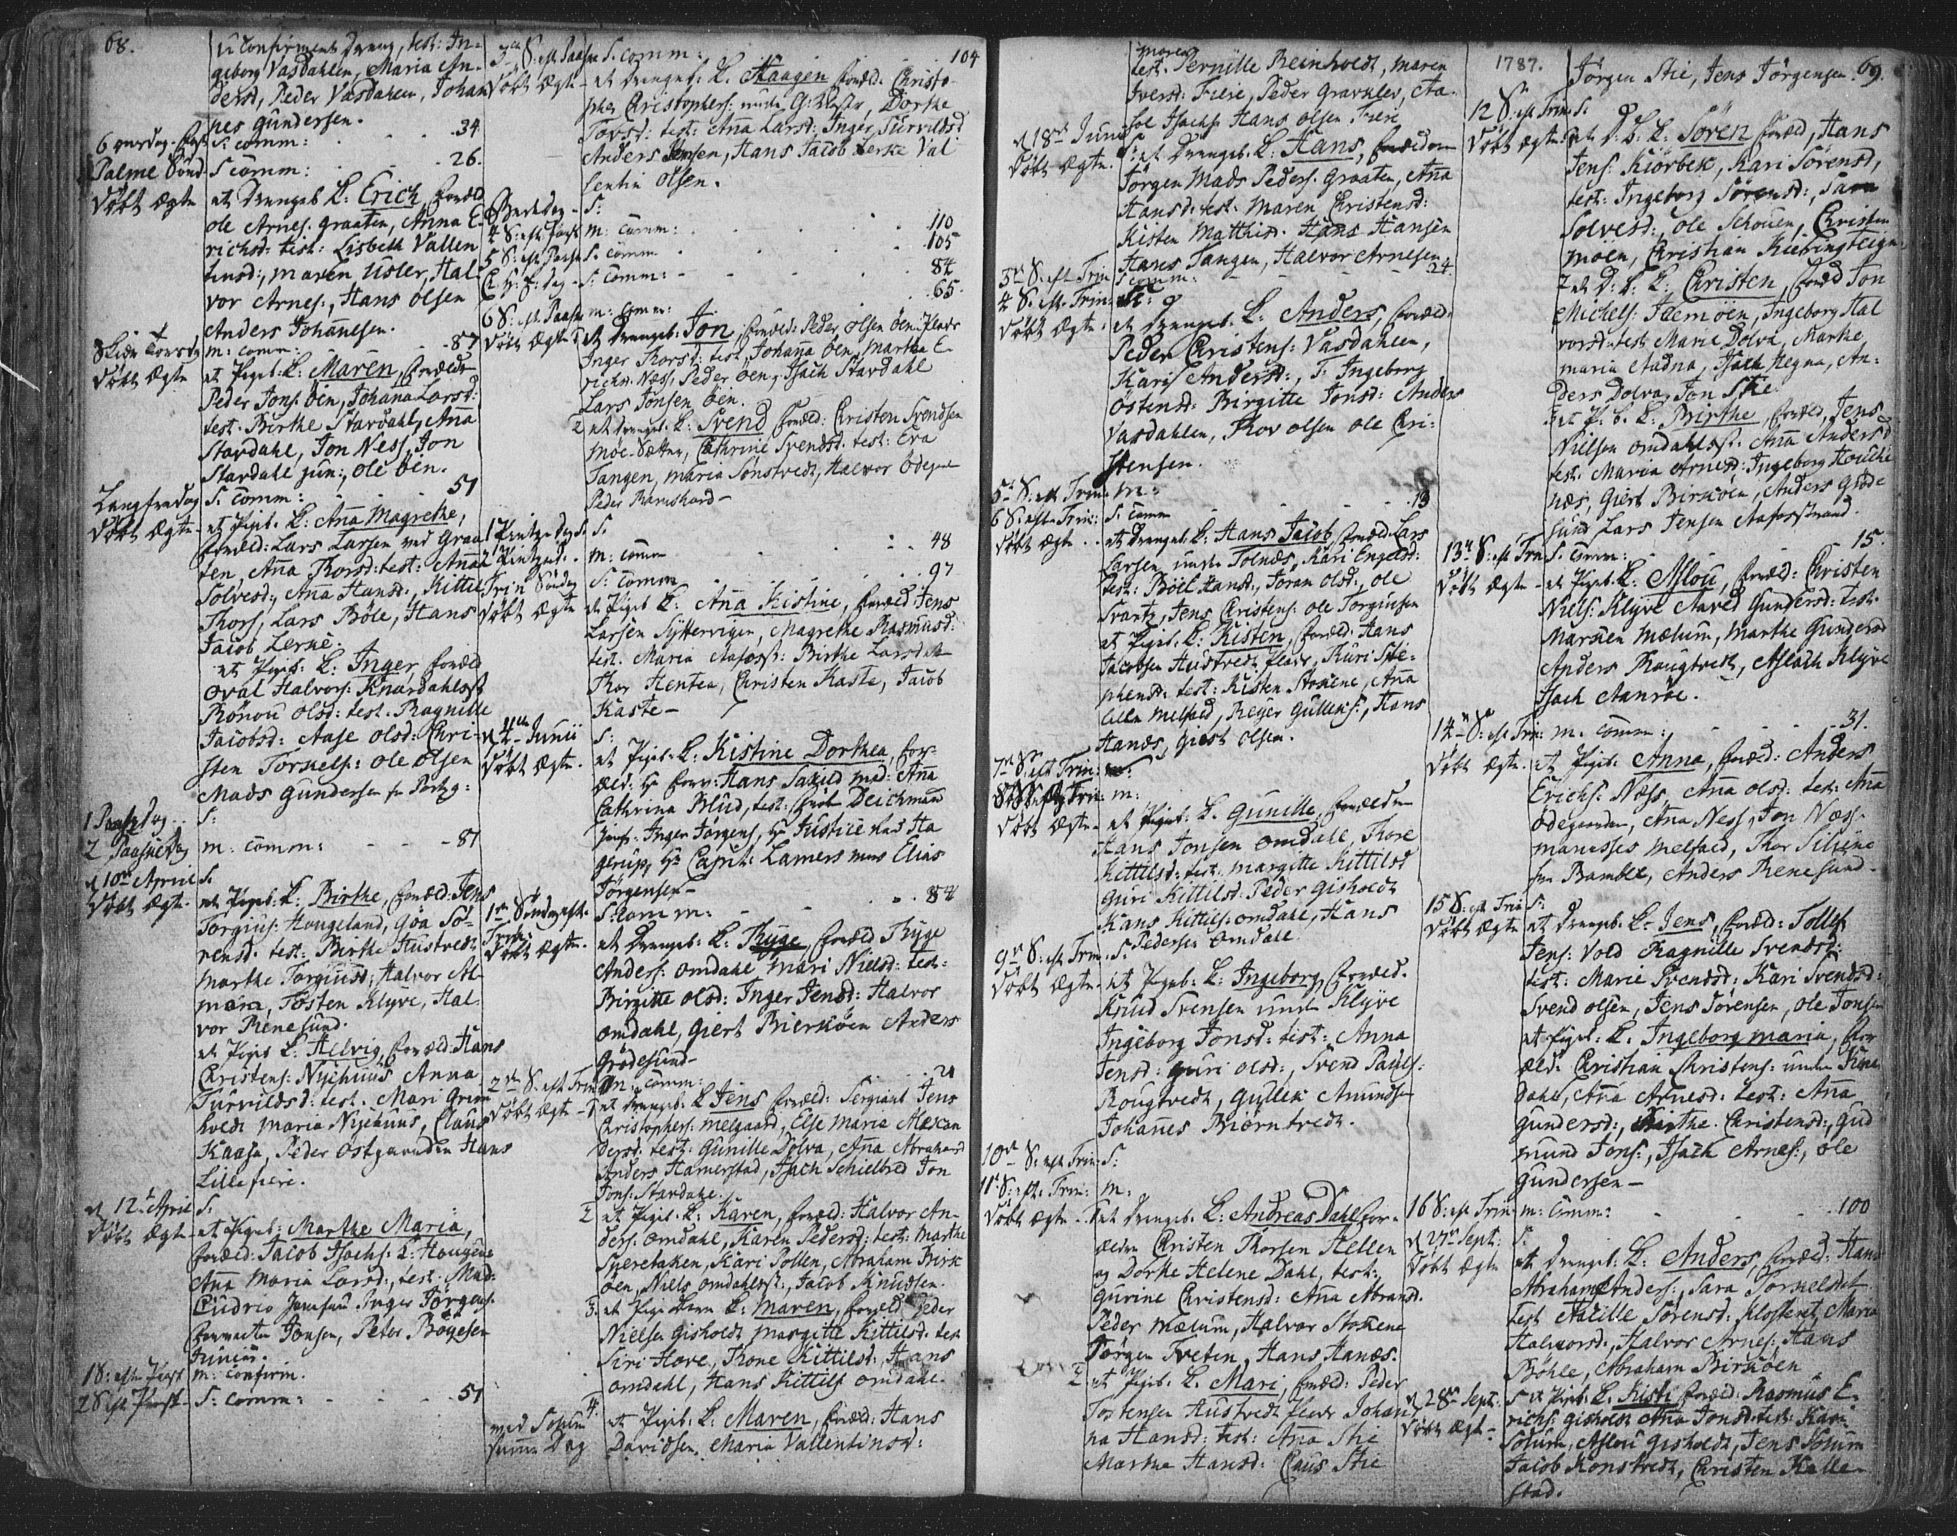 68.
U Confirment Dreng, test: In-
geborg Vasdahlen, Maria An-
dersd, Peder Vasdahlen, Johan
nes Gundersen.
34
S: comm:
Palme Sønd S comm: 26.
Døbt Ægte at Drengeb. L: Erich, foræld
Ole Arnes. Graaten, Anna E-
richsd: test: Lisbeth Vallen
tinsd:, Maren Usler, Hal-
vor Arnes:, Hans Olsen
Anders Johannesen.
Skiær Torsd m: comm: 87
Døbt Ægte at Pigeb. L: Maren, foræld:
Peder Jons: Øen, Johana Larsd:
test. Birthe Stardahl, Ana
Stardahl, Jon Ness, Jon
Stardahl jun:, Ole Øen.
Langfredag S: comm: 51
Døbt Ægte at Pigeb. L: Ana Magrethe,
foræld: Lars Larsen ved Graa
ten, Ana Thorsd: test: Anna
Solvesd:, Ana Hansd:, Kittil
Thors, Lars Bøle, Hans
Jacob Lerke.
at Pigeb. L: Inger, foræld
Oval Halvors: Knardahls
Rønou Olsd: test. Ragnille
Jacobsd: Aase Olsd: Chri-
sten Torkels: Ole Olsen
Mads Gundersen
1 Paaske Dag S:
2 Paaske Dag m: comm: 81
d 10de April S.
Døbt Ægte at Pigeb. L: Birthe, foræld: Jens
Torgius: Hougeland, Goa Sø-
rensd. test: Birthe Hustvedt
Marthe Torgiusd: Halvor
Tosten Klyve, Hal
vor Renesund.
at Pigeb L: Helvig, foræld: Hans
Christens: Nyehuus Anna
Turvildsd: test. Mari Grini
hvedt Maria Nyehuus, Claus
Kaasa, Peder Østgaarden Hans
Lillefieri.
d 12te April S.
Døbt Ægte at Pigeb: Marthe Maria,
foræld: Jacob Isachs: L: Hougene
Ana Maria Larsd:, test. Mad.
Inger Jørgens:
Jonsen, Peter Bøgesen
Junior.
1 S: efter Paask m: confirm.
2 S: eft Paask S: comm: 51
104
3die S: eft Paaske S. comm:
Døbt Ægte at Drengeb: L: Haagen foræld: Christo-
pher Christophers: Dorthe
Tovsd: test: Ana Larsd: Inger Turvildsd
Anders Jensen, Hans Jacob Lerke Val
lentin Olsen.
Bededag S:
4 S: eft Paask m: comm: 110
5 S: eft Paask S: comm 105
C: H: F: Dag S: comm: 84
6 S: eft Paaske m: comm: 65
Døbt Ægte at Drengeb: Jon, foræld: Peder Olsen Øen
Inger Thorsd: test, Johana Øen, Marthe E-
richs: Næs, Peder Øen, Isach Stardahl
Lars Jonsen Øen.
2 at Drengeb. L: Svend foræld: Christen Svendsen
Moe-Sætter, Cathrine Svendsd. test: Eva
Tangen, Maria Sønstvedt, Halvor Ødegrd
Peder Ramshard
1 Pintze Dag S.
2 Pintzed. m: comm 48
Trin: Søndag S: comm 97
Døbt Ægte at Pigeb L: Ana Kistine, foræld Jens
Larsen Syttervigen, Magrethe Rasmusd:
test. Maria Aafoss: Birthe Larsdah
Thor Hentea, Christen Kaste, Jacob
Kaste
d 4de Junii S:
Døbt Ægte. at Pigeb. L: Kistine Dorthea, for-
æld. Hr Forv: Hans Saxild Mad: Ana
Cathrina Blud, test: Deichman
Jomf: Inger Jørgens, Hr Justice Raad Ha
gerup, Hr Capit: Lamers Mons Elias
Jørgensen
1ste Søndag eft. S: comm: 84
Trin:
Døbt Ægte. at Drengeb: L: Thyge, foræld Thyge
Anders: Omdahl Mari Nielsd: test:
Birgitte Olsd: Inger Jensd: Halvor
Omdahl, Giert Bierkøen Anders
Grødesund
2den S. eft Trin m: comm: 21
Døbt Ægte 1. at Drengeb: L Jens foræld: Sergiant Jens
Christophers: Melgaard, Else Maria Alexan
dersd: test: Gunille Dolva, Ana Abrahamd
Anders Hamerstad, Isach Schielbred Jon
Jons: Stardahl.
2 at Pigeb. L: Karen, foræld: Halvor An-
ders: Omdahl, Karen Pedersd: test: Marthe
Speretaken, Kari Pollen, Abraham Birk
øen, Niels Omdahls:, Jacob Knudsen.
3. at Pige Barn L: Maren, foræld Peder
Nielsen Gisholdt Margitte Kittilsd: test
Siri Hove, Thone Kittilsd: Hans
Omdahl, Hans Kittils Omdahl.
4. at Pigeb: L: Maren, foræld: Hans
Davidsen, Maria Vallentinsd:
Maren
test. Pernille Reinholdt, Maren
Iversd: Frere, Peder Gravales, Aa-
Isachs: Hans Olsen Frere
d 18de Junii
Døbt Ægte. at Drengeb. L: Hans, forældrene
Jørgen Mads Peders. Graaten, Ana
Hansd: test. Maren Christensd:
Kisten Matthisd: Hans Hansen
Hans Tangen, Halvor Arnesen
3de S. eft Trin S comm: 24.
4 S. eft. Trin: S: 9
Døbt Ægte: at Drengeb. L: Anders, foræld:
Peder Christens: Vasdahlen,
Karis Andersd:, T: Ingeborg
Østensd: Birgitte Jonsd: Anders
Vasdahlen, Thov Olsen Ole Chri-
stensen.
5te S: eft Trin: m:
6 S: eft Trin: S: comm 19
Døbt Ægte at Drengeb. L: Hans Jacob, foræld. Lars
Larsen, under Tolnæs, Kari Engelsd:
test: Boel Hansd: Joran Olsd:, Ole
Svartz, Jens Christens: Ole Torgiusen
at Pigeb. L: Kisten, foræld: Hans
Jacobsen Hustvedt Guri Ste-
phensd: test: Kisten Stokene, Ana
Lille Melsed, Reyer Gullens:, Hans
Hanæs, Giert Olsen.
7de S: eft Trin:
8de S: eft Trin: m:
Døbt Ægte at Pigeb. L. Gunille, forældr
Hans Jonsen Omdahl Thore
Kittilsd: test: Margitte Kittilsd
Guri Kittilsd: Peder Gisholdt
Hans Kittils: Omdahl, Hans
Pedersen Omdahl.
9de S: eft Trin. S.
Døbt Ægte. at Pigeb: L: Ingeborg, foræld.
Knud Svensen under Klyve
Ingeborg Jonsd: test: Anna
Jensd: Guri Olsd:, Svend Pauls:
Rougtvedt, Gullek Amunds
Johannes Biørntvedt.
10de S. eft Trin: S:
11te S: eft. Trin: m:
Døbt Ægte 1. at Drengeb: L: Andreas Dahl for-
ældre Christen Thorsen Hellen
og Dorthe Helene Dahl, test:
Gurine Christensd: Ana Abrand.
Peder Mælum, Halvor Stokene
Jørgen Tveten, Hans Hanæs.
2 at Pigeb. L. Mari, foræld: Peder
Tostensen Hustvedt Johan
na Hansd: test: Ana Stie
Marthe Hansd: Claus Stie
1787.
69.
Jørgen Stie, Jens Jørgensen
12 S. eft Trin: S:
Døbt Ægte: 1 at D. B. L: Søren foræld, Hans
Jens: Kiørbek, Kari Sørensd,
test: Ingeborg Sørensd: Sara
Solvesd:, Ole Schouen, Christen
Moen, Christian Kiebingteign
2 at D: B. L: Christen, foræld Jon
Michels: Hemoen, Ingeborg Hal
vorsd: test Marie Dolva, Marthe
Maria Aadna, Isach Hegna, An-
ders Dolva, Jon Stie.
3 at P. B. L: Birthe, foræld, Jens
Nielsen Omdahls: Ana Andersd
test. Maria Arnesd: Ingeborg
næs, Giert Birkøen, Anders Grøde
sund Lars Jensen Aafosstrand.
13de S: eft Trin S: comm: 15.
Døbt Ægte at Pigeb. L: Aslou, foræld: Christen
Niels: Klyve Gundersd: test:
Maren Mælum, Marthe Gundersd
Anders Rougtvedt, Aslach Klyve
Isach Aanrøe.
14de S: eft Trin: m: comm: 31.
Døbt Ægte. at Pigeb: Anna, foræld: Anders
Erichs: Næss, Ana Olsd: test: Ana
Ødegaarden, Ana Ness, Jon Næss
Manasses Melsæd, Thor Siliene
fra Bamble, Anders Renesund.
15 S: eft Trin S:
Døbt Ægte at Drengeb. L: Jens, foræld: Tollef
Jens: Vold Ragnille Svendsd:
test: Marie Svendsd: Kari Svendsd:
Svend Olsen, Jens Sørensen, Ole Jonsen
at Pigeb: L. Ingeborg Maria, for
æld: Christian Christens: under
dahl, Ana Arnesd: test: Ana
Gundersd:, Birthe Christensd:, Gud
mund Jons:, Isach Arnes:, Ole
Gundersen
16 S: eft Trin m: comm: 100
d 27de Sept: S:
Døbt Ægte at Drengeb. L: Anders, foræld: Hans
Abraham Anders:, Sara Torkelsd
test Helille Sørensd: Klostret, Maria
Halvorsd:, Halvor Arnes: Hans
Bøhle, Abraham Birkøen
d 28de Sept. S at Pigeb. L: Kisti foræld: Rasmus E-
Døbt Ægt richs: Gisholdt Ana Jonsd: test: Kari
Solum, Aslou Gisholdt, Jens Solum
Jacob Konstvedt, Christen Kalle-
stad.